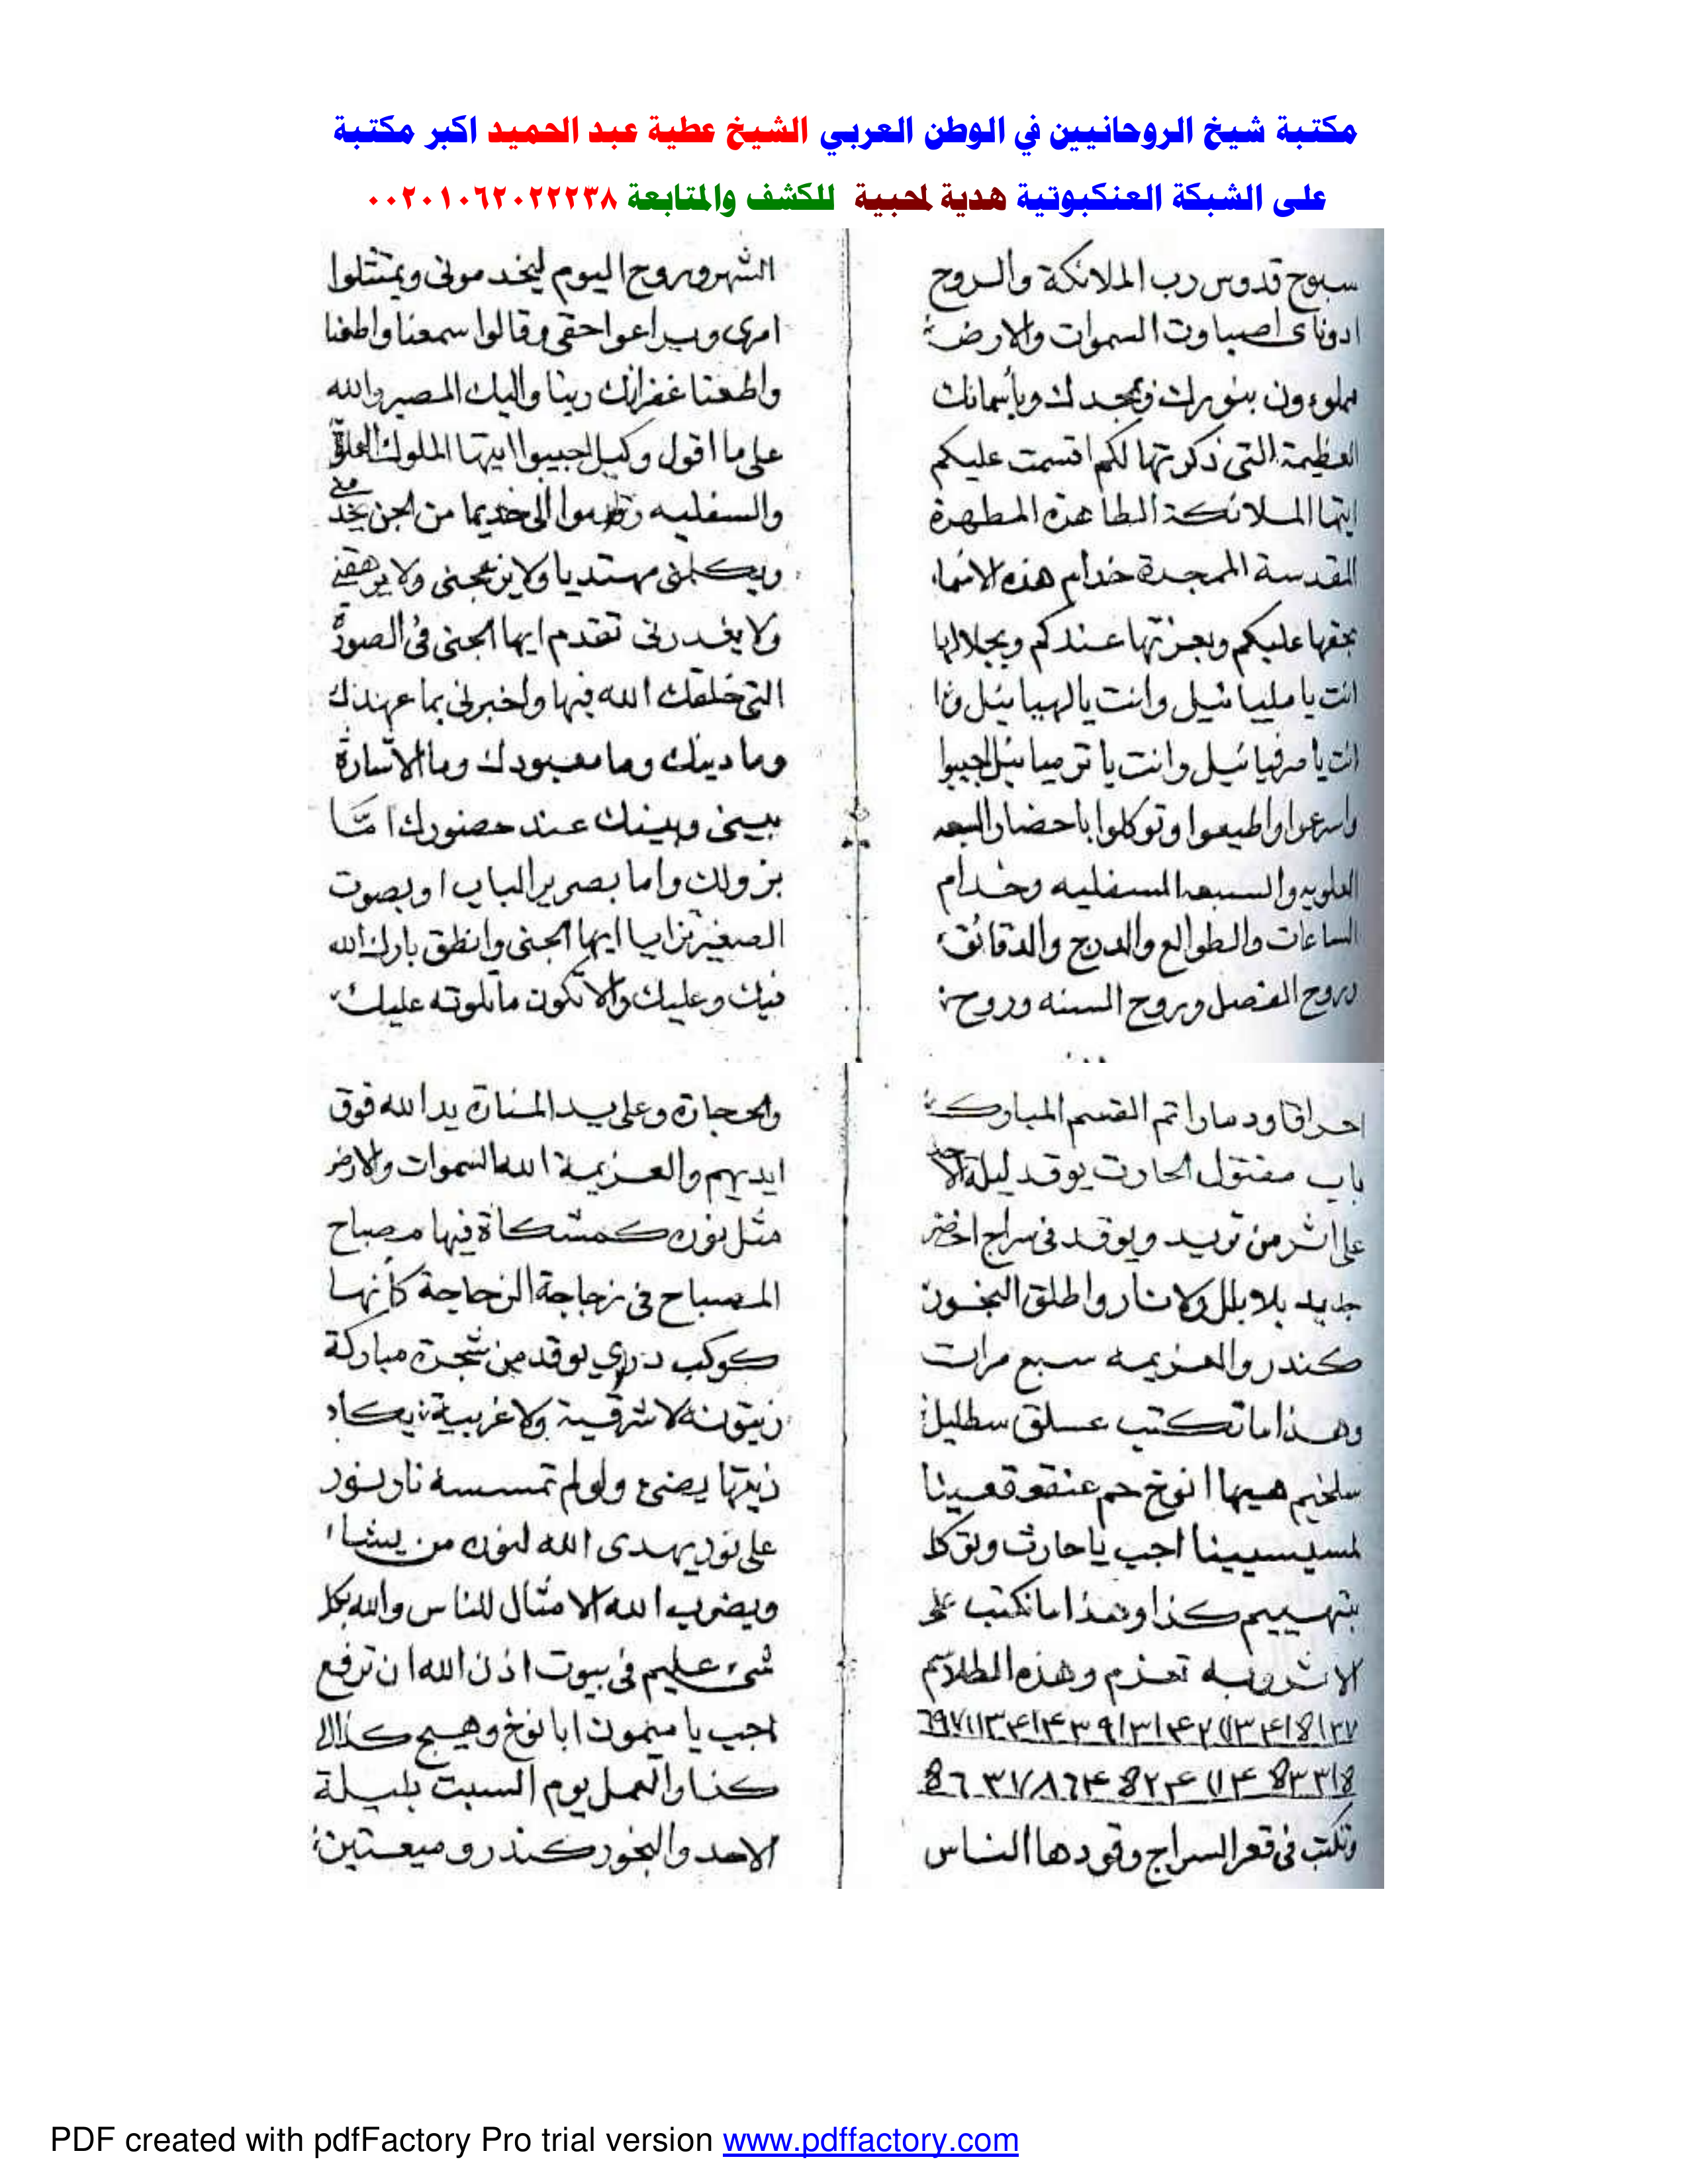 مكتبة شيخ الروحانيين في الوطن العربي الشيخ عطية عبد الحميد اكبر مكتبة
على الشبكة العنكبوتية هدية لمحبية للكشف والمتابعة ٠٠٢٠١٠٦٢٠٢٢٢٣٨
سبوح قدوس رب الملائكة والروح
ادوناى اصباوت السموات والارض
مملوءون بنورك وبمجدك وبأسمائك
العظيمة التى ذكرتها لكم اقسمت عليكم
ايتها الملائكة الطاهرة المطهرة
المقدسة الممجدة خدام هذه الاسماء
بحقها عليكم وبعزتها عندكم وبجلالها
انت يا ملييائيل وانت يا لهييائيل وا
انت يا صرفيائيل وانت يا ترميائيل اجيبوا
واسرعوا واطيعوا وتوكلوا باحضار السبعه
العلويه والسبعه السفليه وخدام
الساعات والطوالع والدرج والدقائق
وروح الفصل وروح السنه وروح
الشهر وروح اليوم ليخدمونى ويمتثلوا
امرى ويراعوا حقى وقالوا سمعنا واطعنا
واطعنا غفرانك ربنا واليك المصير والله
على ما اقول وكيل اجيبوا ايتها الملوك العلوية
والسفليه الى خديما من الجن يخدمنى
ويكلمنى مهتديا ولا يزعجنى ولا يرهقنى
ولا يغدرنى تقدم ايها الجنى فى الصورة
التى خلقك الله فيها واخبرنى بما عهدك
وما دينك وما معبودك وما الاشارة
بينى وبينك عند حضورك امّا
بزولك واما بصرير الباب او بصوت
الصغير ايها الجنى وانطق بارك الله
فيك وعليك والا تكون ما تلوته عليك
احراقا ودمارا تم القسم المبارك
باب مفتول الحارت يوقد ليلة الاحد
على اثر من تريد ويوقد فى سراج اخضر
جديد بلا بلل ولا نار واطلق البخور
كندر والعزيمه سبع مرات
وهذا ما تكتب عسلق سطليل
سلخيم هيها انوخ حم
اجب يا حارث وتوكل
بتهييم كذا وهذا ما تكتب على
الاثر وبه تعزم وهذه الطلاسم
وتكتب فى قعر السراج وقودها الناس
والحجارة وعلى يد المنارة يد الله فوق
ايديهم والعزيمة الله السموات والارض
مثل نوره كمشكاة فيها مصباح
المصباح فى زجاجة الزجاجة كأنها
كوكب دري يوقد من شجرة مباركة
زيتونه لا شرقية ولا غربية يكاد
زيتها يضئ ولو لم تمسسه نار نور
على نور يهدى الله لنوره من يشاء
ويضرب الله الامثال للناس والله بكل
شئ عليم فى بيوت اذن الله ان ترفع
اجب يا ميمون ابا نوخ وهيج كذا الى
كذا والعمل يوم السبت بليلة
الاحد والبخور كندر وميعتين
PDF created with pdfFactory Pro trial version www.pdffactory.com